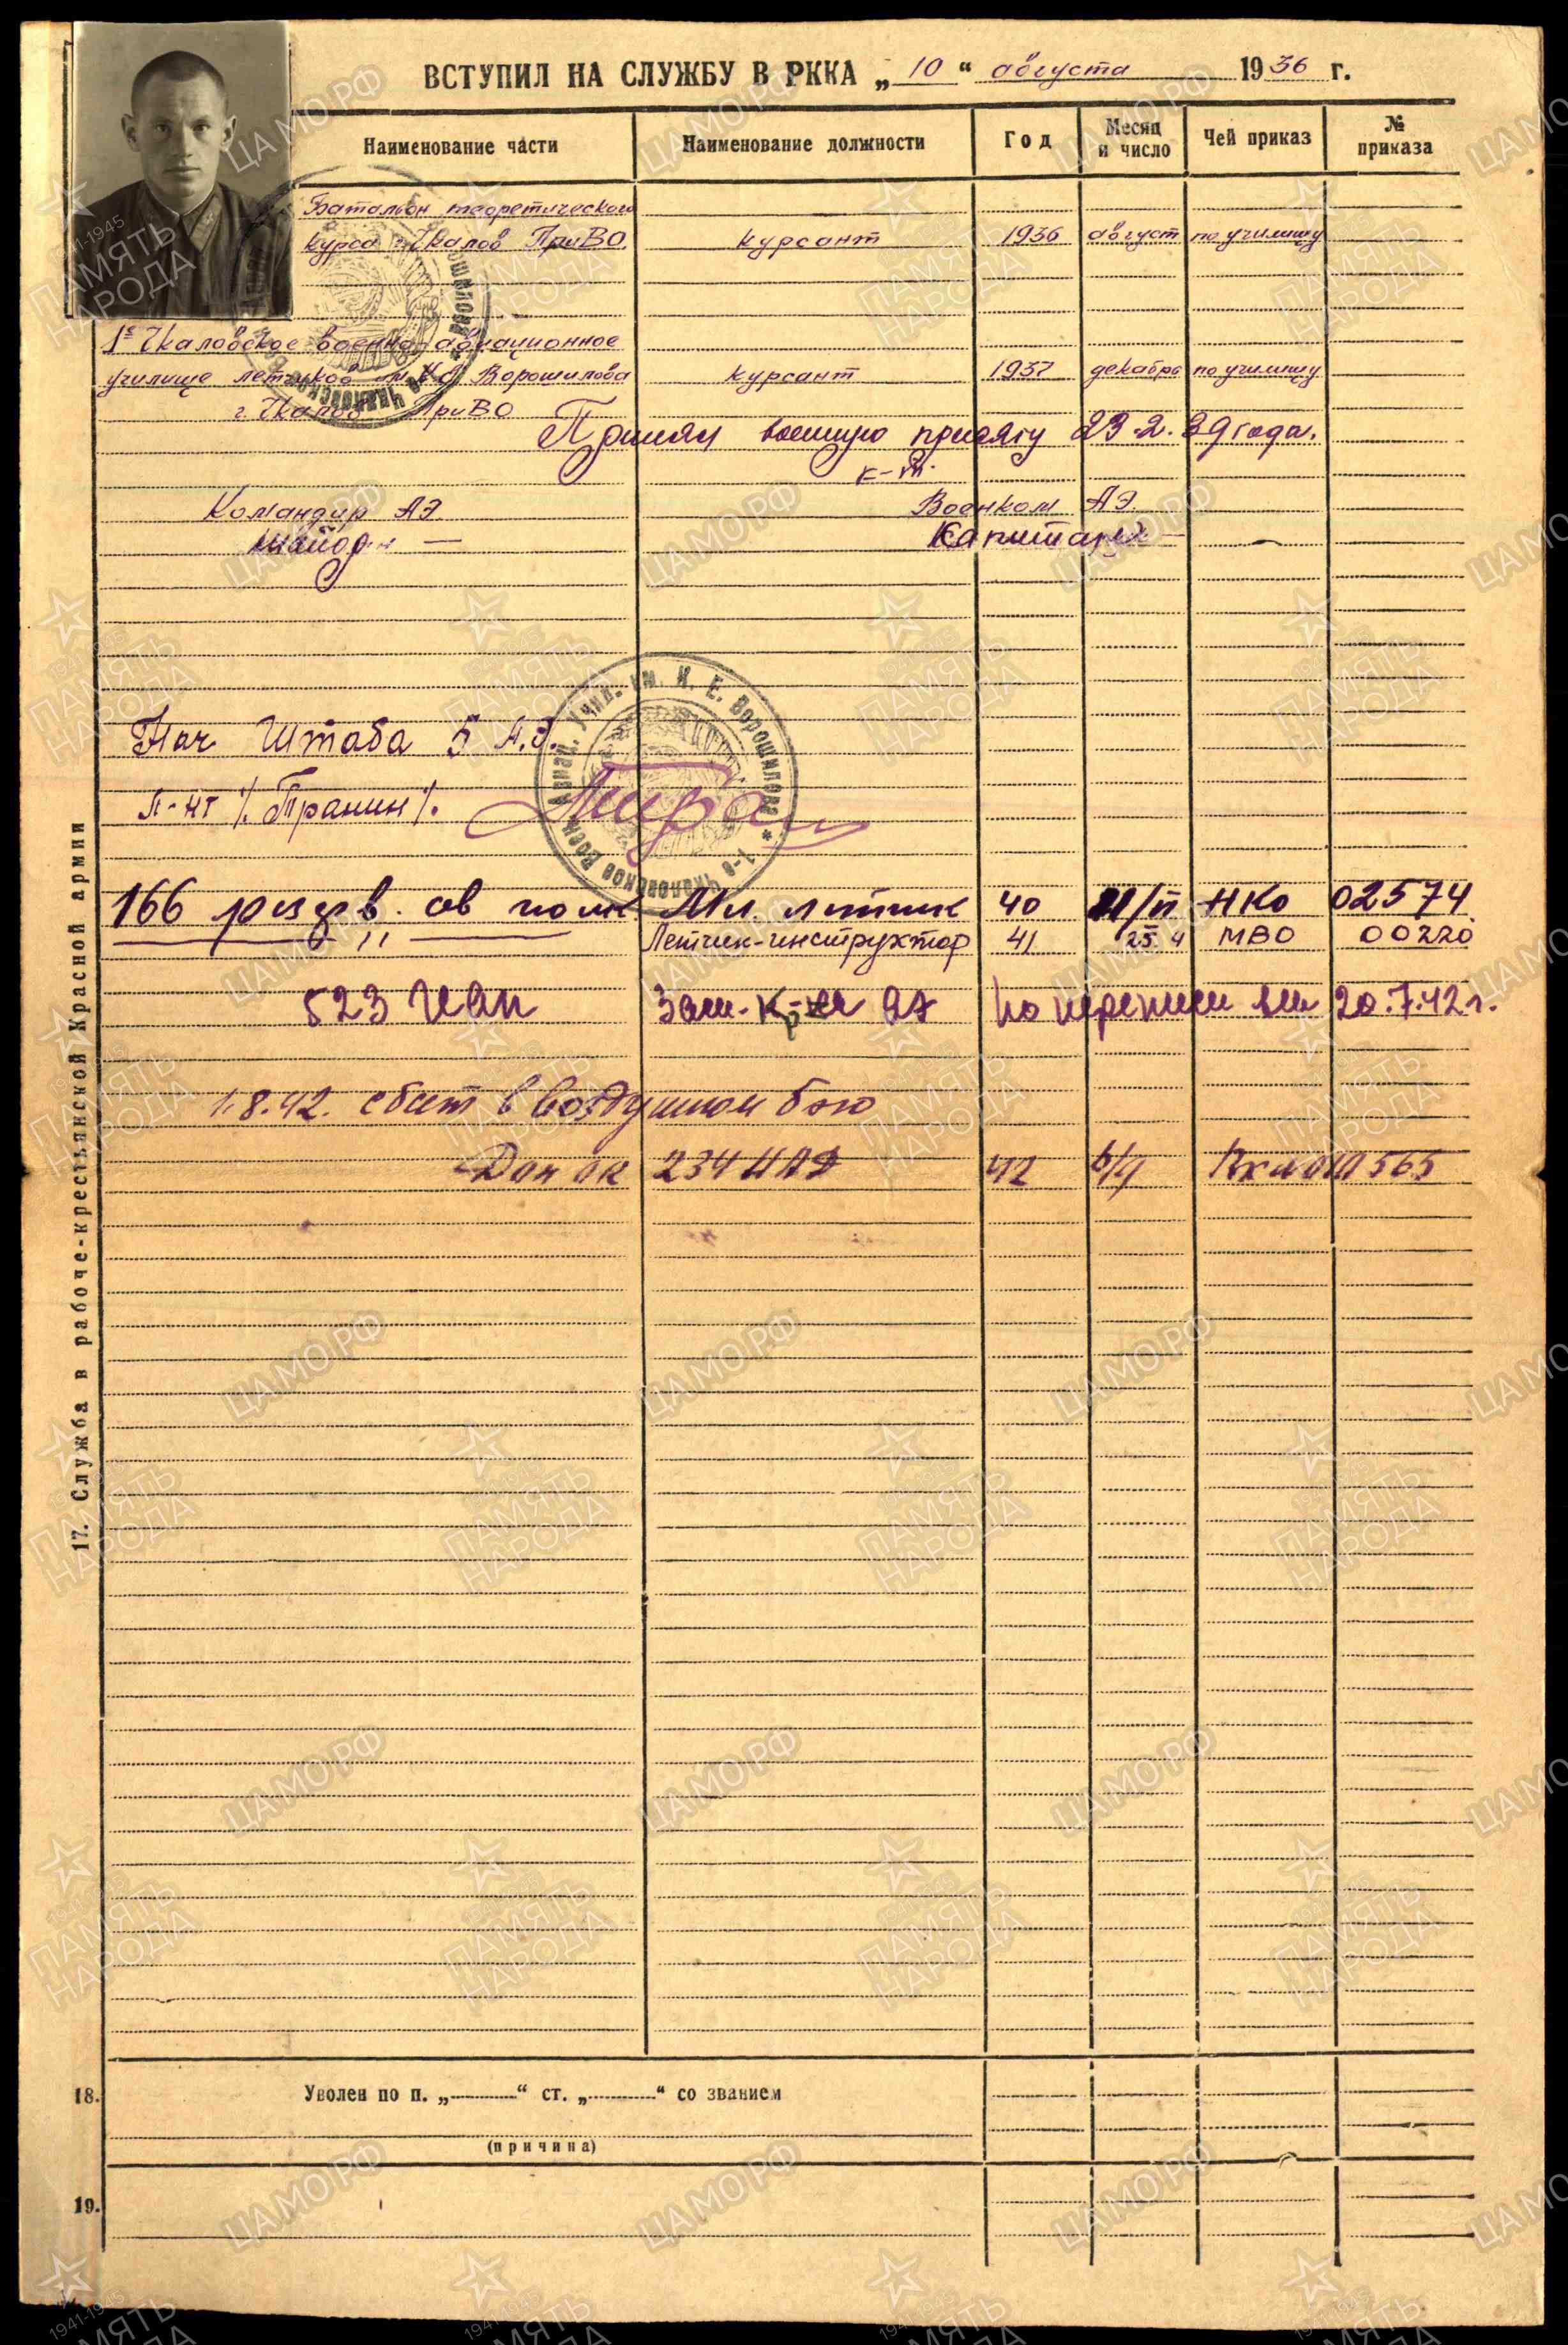 ВСТУПИЛ НА СЛУЖБУ В РККА „10“ августа 1936 г.
Наименование части Наименование должности Год Месяц и число Чей приказ № приказа
Батальон теоретического
курса г. Чкалов ПриВО. курсант 1936 август по училищу
1е Чкаловское военно-авиационное
училище летчиков им. К.Е. Ворошилова курсант 1937 декабрь по училищу
г. Чкалов ПриВО
Принял военную присягу 23.2.39 года.
Командир АЭ Военком АЭ
майор — Капитан —
Нач Штаба 5 А.Э.
л-нт /. Транин /.
166 резерв. ав полк Мл. летчик 40 НКО 02574
–„– Летчик-инструктор 41 25 4 МВО 00220
523 иап Зам. к-ра аэ по переписи вш 20.7.42 г.
1.8.42. сбит в воздушном бою
Дон ок 234 ИАД 42 б/д 565
17. Служба в рабоче-крестьянской Красной армии
18. Уволен по п. „ “ ст. „ “ со званием
(причина)
19.
Чкаловское Воен. Авиац. Учил. им. К. Е. Ворошилова * 1-е
ЦАМО.РФ
1941-1945
ПАМЯТЬ
НАРОДА